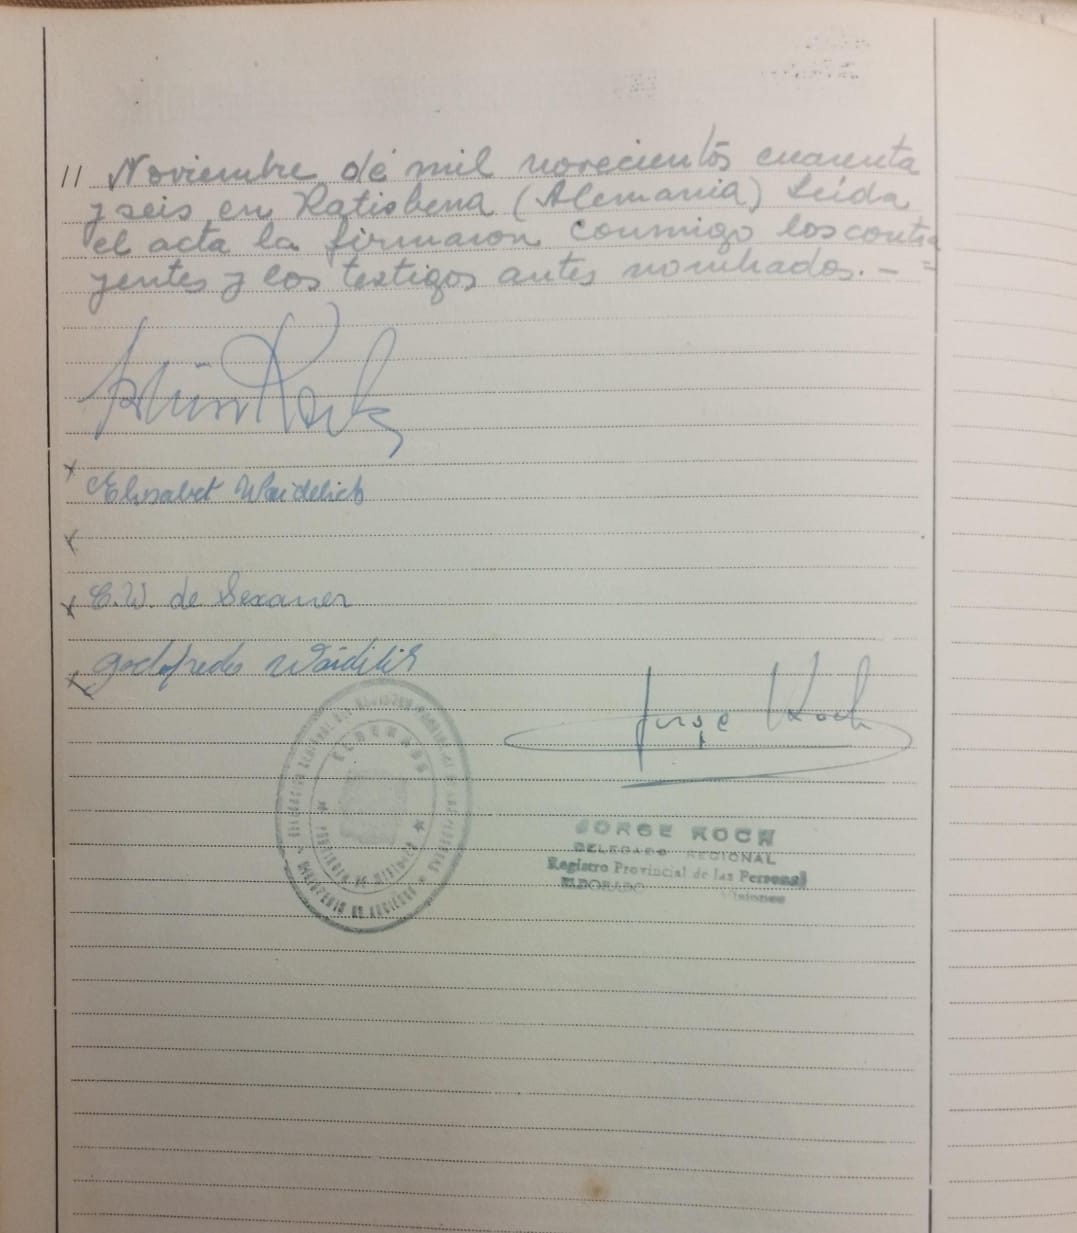 11 Noviembre de mil novecientos cuarenta
y seis en Ratisbona (Alemania) Leída
el acta la firmaron conmigo los contra
yentes y los testigos antes nombrados. - =
Elisabet Waidelich
E.W. de Sexauer
Godofredo Waidelich
Jorge Koch
ELDORADO
PROVINCIA DE MISIONES
JORGE KOCH
DELEGADO REGIONAL
Registro Provincial de las Personas
ELDORADO Misiones